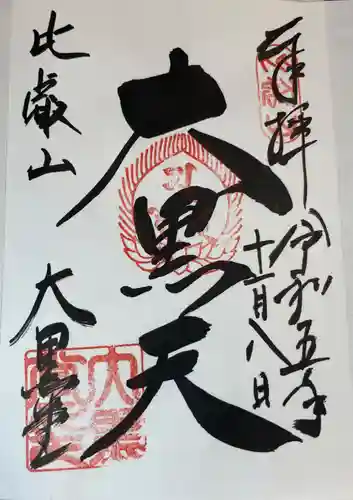 奉拝
令和五年
十二月八日
大黒天
比叡山
大黒堂